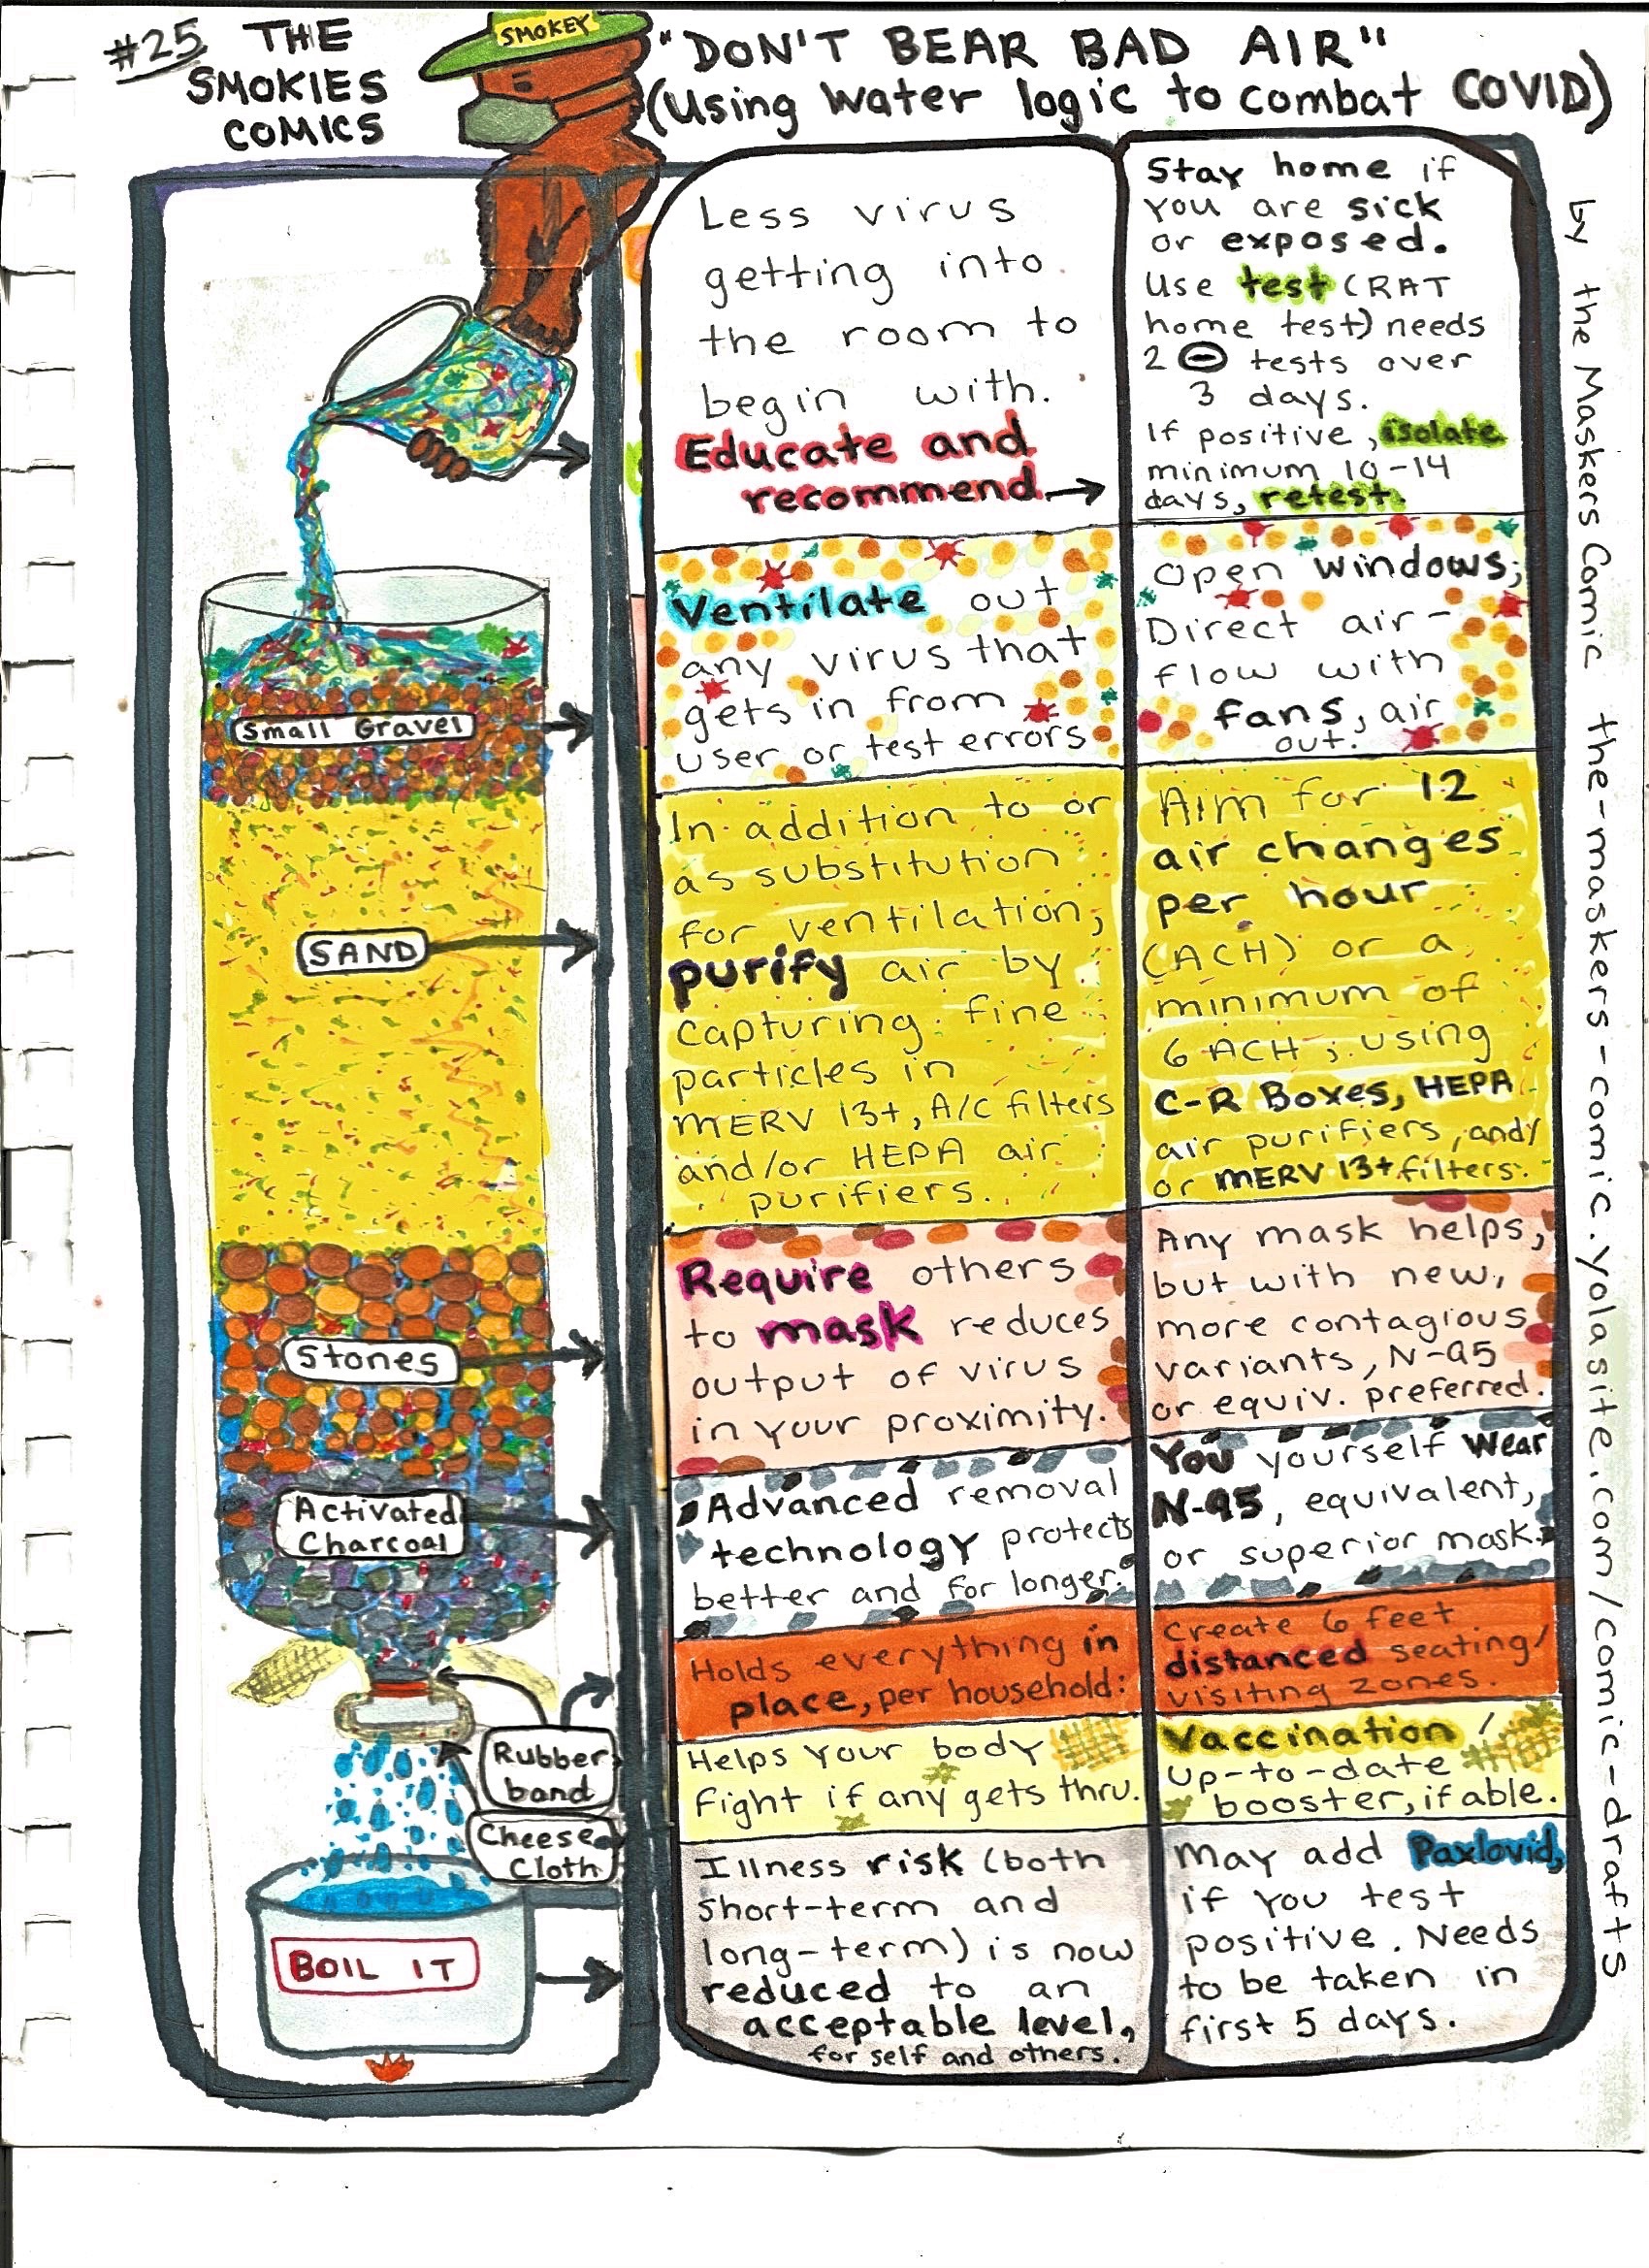 #25 THE
SMOKIES
COMICS
SMOKEY
"DON'T BEAR BAD AIR"
(Using Water logic to combat COVID)
Less virus
getting into
the room to
begin with.
Educate and
recommend
Stay home if
you are sick
or exposed.
Use test (RAT
home test) needs
2 ⊖ tests over
3 days.
If positive, isolate
minimum 10-14
days, retest.
Small Gravel
Ventilate out
any virus that
gets in from
user or test errors
Open windows;
Direct air-
flow with
fans, air
out.
SAND
In addition to or
as substitution
for ventilation,
purify air by
capturing fine
particles in
MERV 13+, A/C filters
and/or HEPA air
purifiers.
Aim for 12
air changes
per hour
(ACH) or a
minimum of
6 ACH; using
C-R Boxes, HEPA
air purifiers, and/
or MERV 13+ filters.
Stones
Require others
to mask reduces
output of virus
in your proximity.
Any mask helps,
but with new,
more contagious
variants, N-95
or equiv. preferred.
Activated
Charcoal
Advanced removal
technology protects
better and for longer.
You yourself Wear
N-95, equivalent,
or superior mask.
Rubber
band
Holds everything in
place, per household:
Create 6 feet
distanced seating/
visiting zones.
Cheese
Cloth
Helps your body
fight if any gets thru.
Vaccination/
up-to-date
booster, if able.
BOIL IT
Illness risk (both
short-term and
long-term) is now
reduced to an
acceptable level,
for self and others.
May add Paxlovid,
if you test
positive. Needs
to be taken in
first 5 days.
by the Maskers Comic the-maskers-comic.yolasite.com/comic-drafts